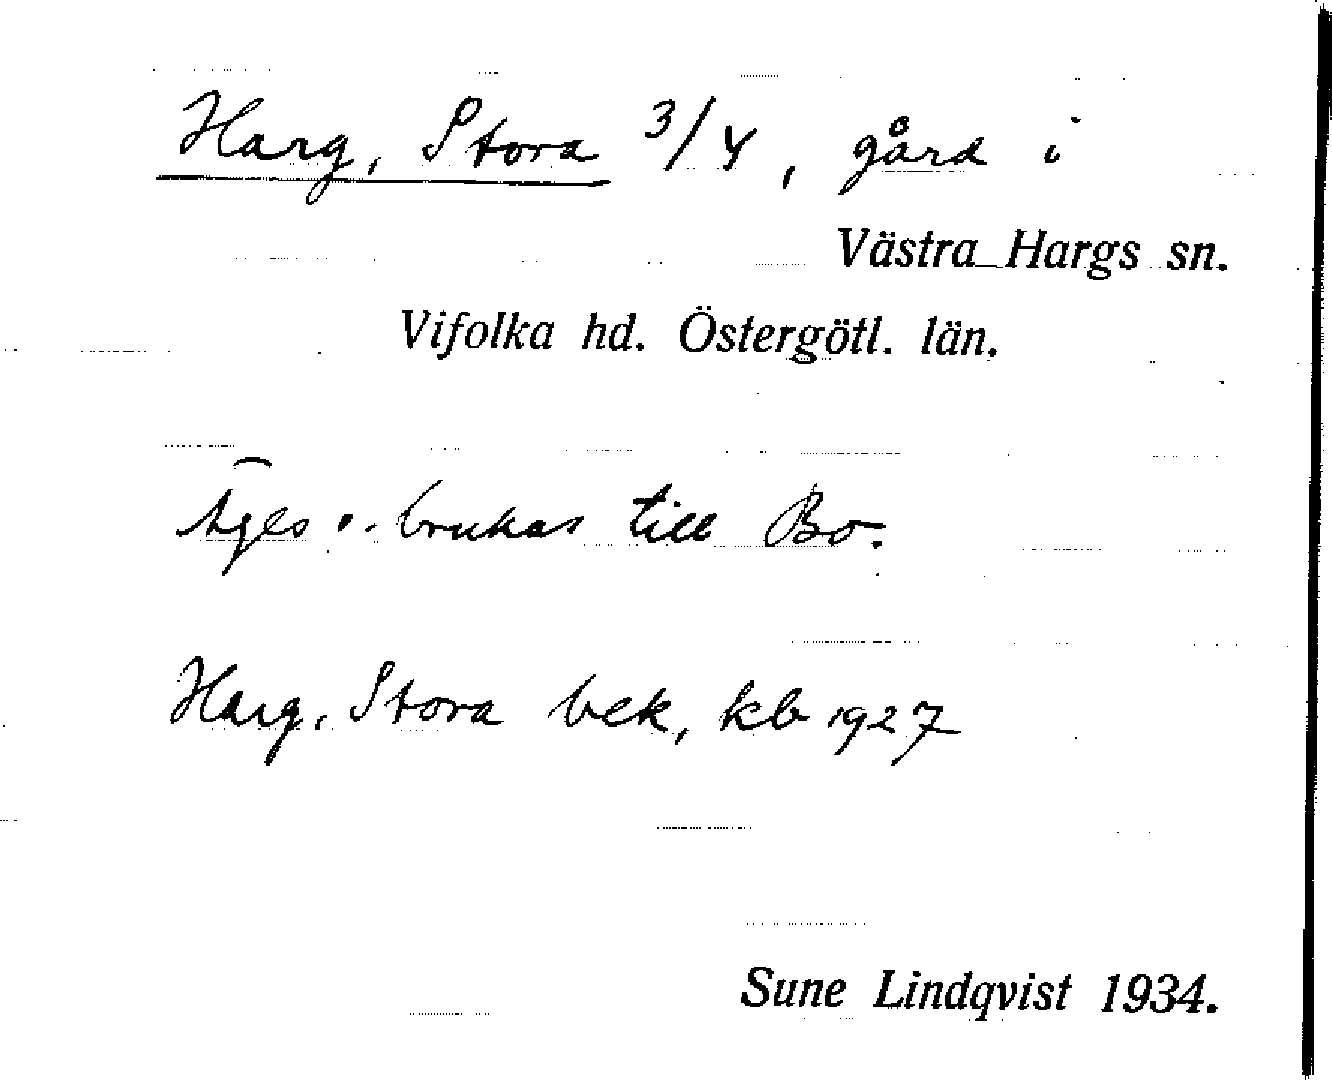 Harg, Stora 3/4, gård i
Västra Hargs sn.
Vifolka hd. Östergötl. län.
Äges o. brukas till Bo.
Harg, Stora bek, kb 1927
Sune Lindqvist 1934.